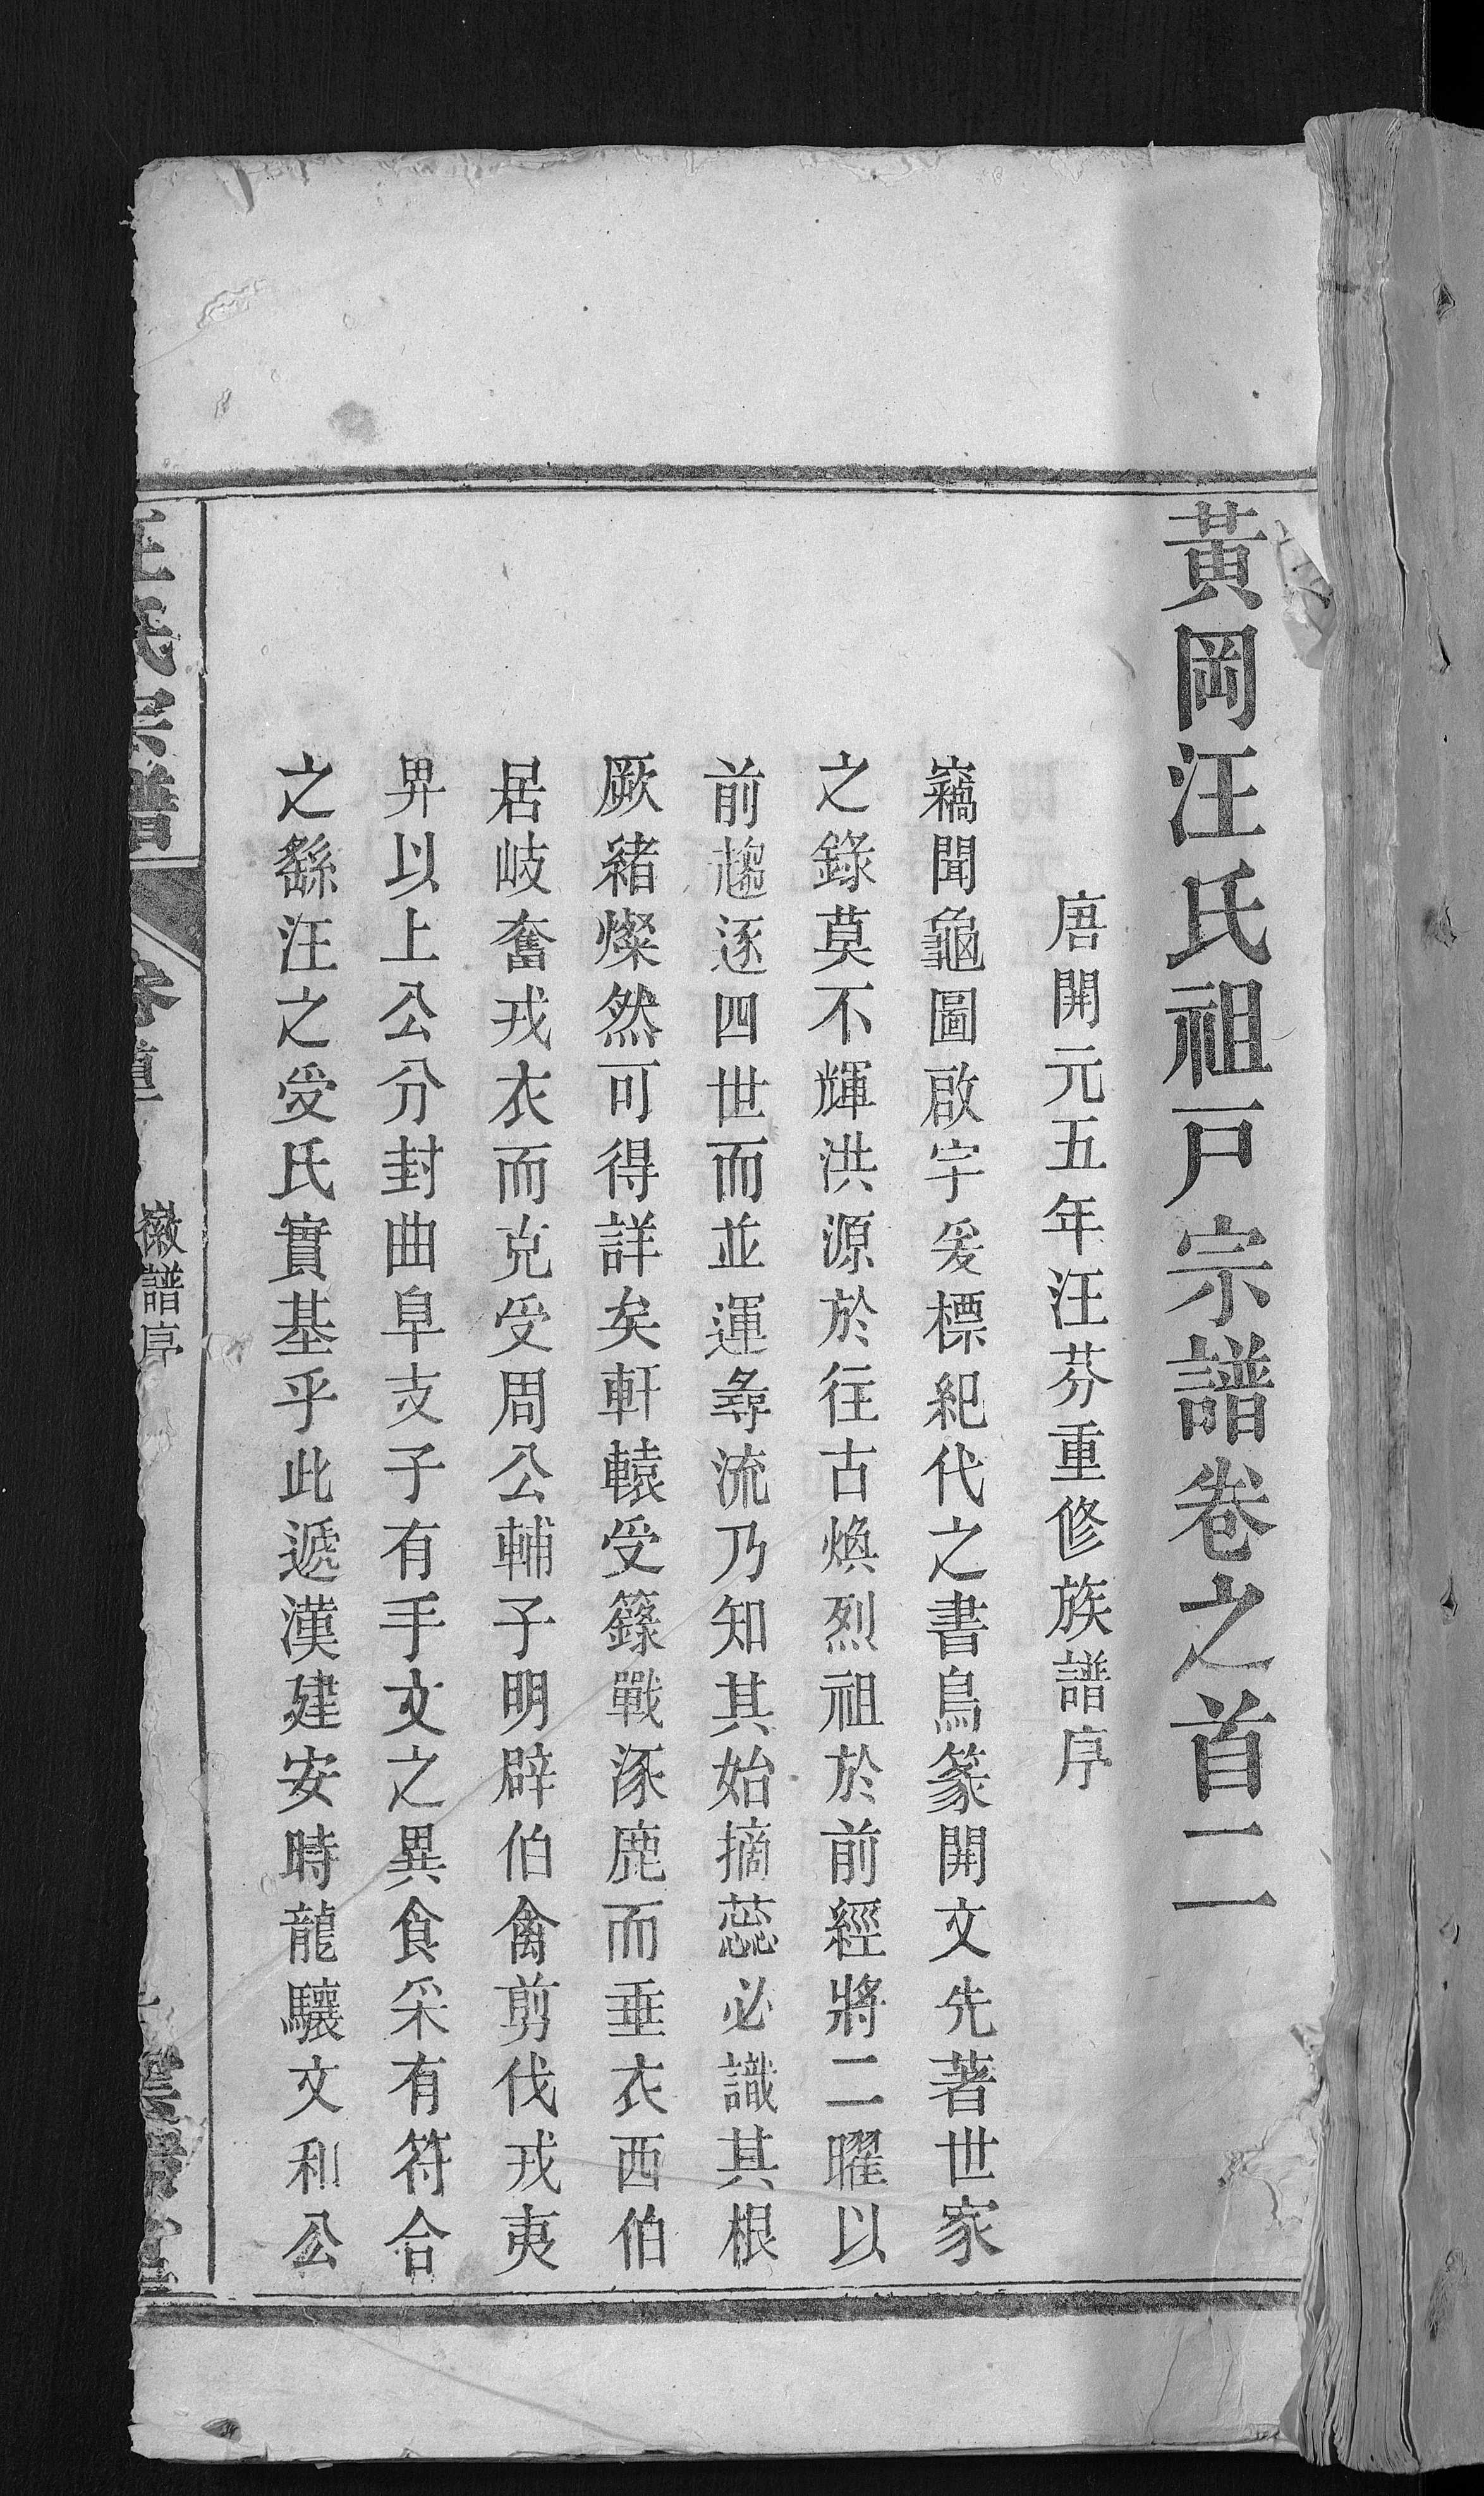 黃岡汪氏祖戸宗譜卷之首二
唐開元五年汪芬重修族譜序
竊聞龜圖啟字爰標紀代之書鳥篆開文先著世家
之錄莫不輝洪源於往古煥烈祖於前經將二曜以
前趨逐四世而並運尋流乃知其始摘蕊必識其根
厥緒燦然可得詳矣軒轅受籙戰涿鹿而垂衣西伯
居岐奮戎衣而克受周公輔子明辟伯禽剪伐戎夷
畀以上公分封曲阜支子有手文之異食采有符合
之繇汪之受氏實基乎此遞漢建安時龍驤文和公
汪氏宗譜
徽譜序